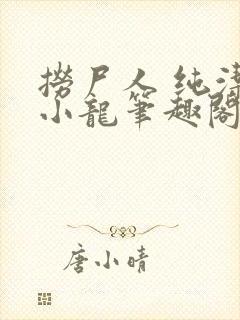 捞尸人 纯洁
小龍筆趣閣
唐小晴